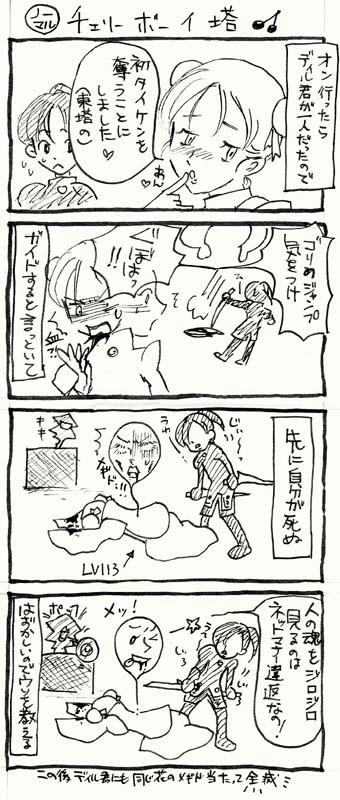 ノーマル チェリーボーイ塔
オン行ったら
ディル君が一人だったので
初タイケンを
奪うことに
しました♡
(東塔の)
あん♡
ゴリめジャンプ
気をつけ
ぐぼぼっ
!!
ガイドすると言っといて
先に自分が死ぬ
じぃ〜
キキ
LV113
人の魂をジロジロ
見るのは
ネットマナー違反なの!
メッ!
じぃ〜
はずかしいのでウソを教える
この後ディル君にも同じ花のメギド当たって全滅